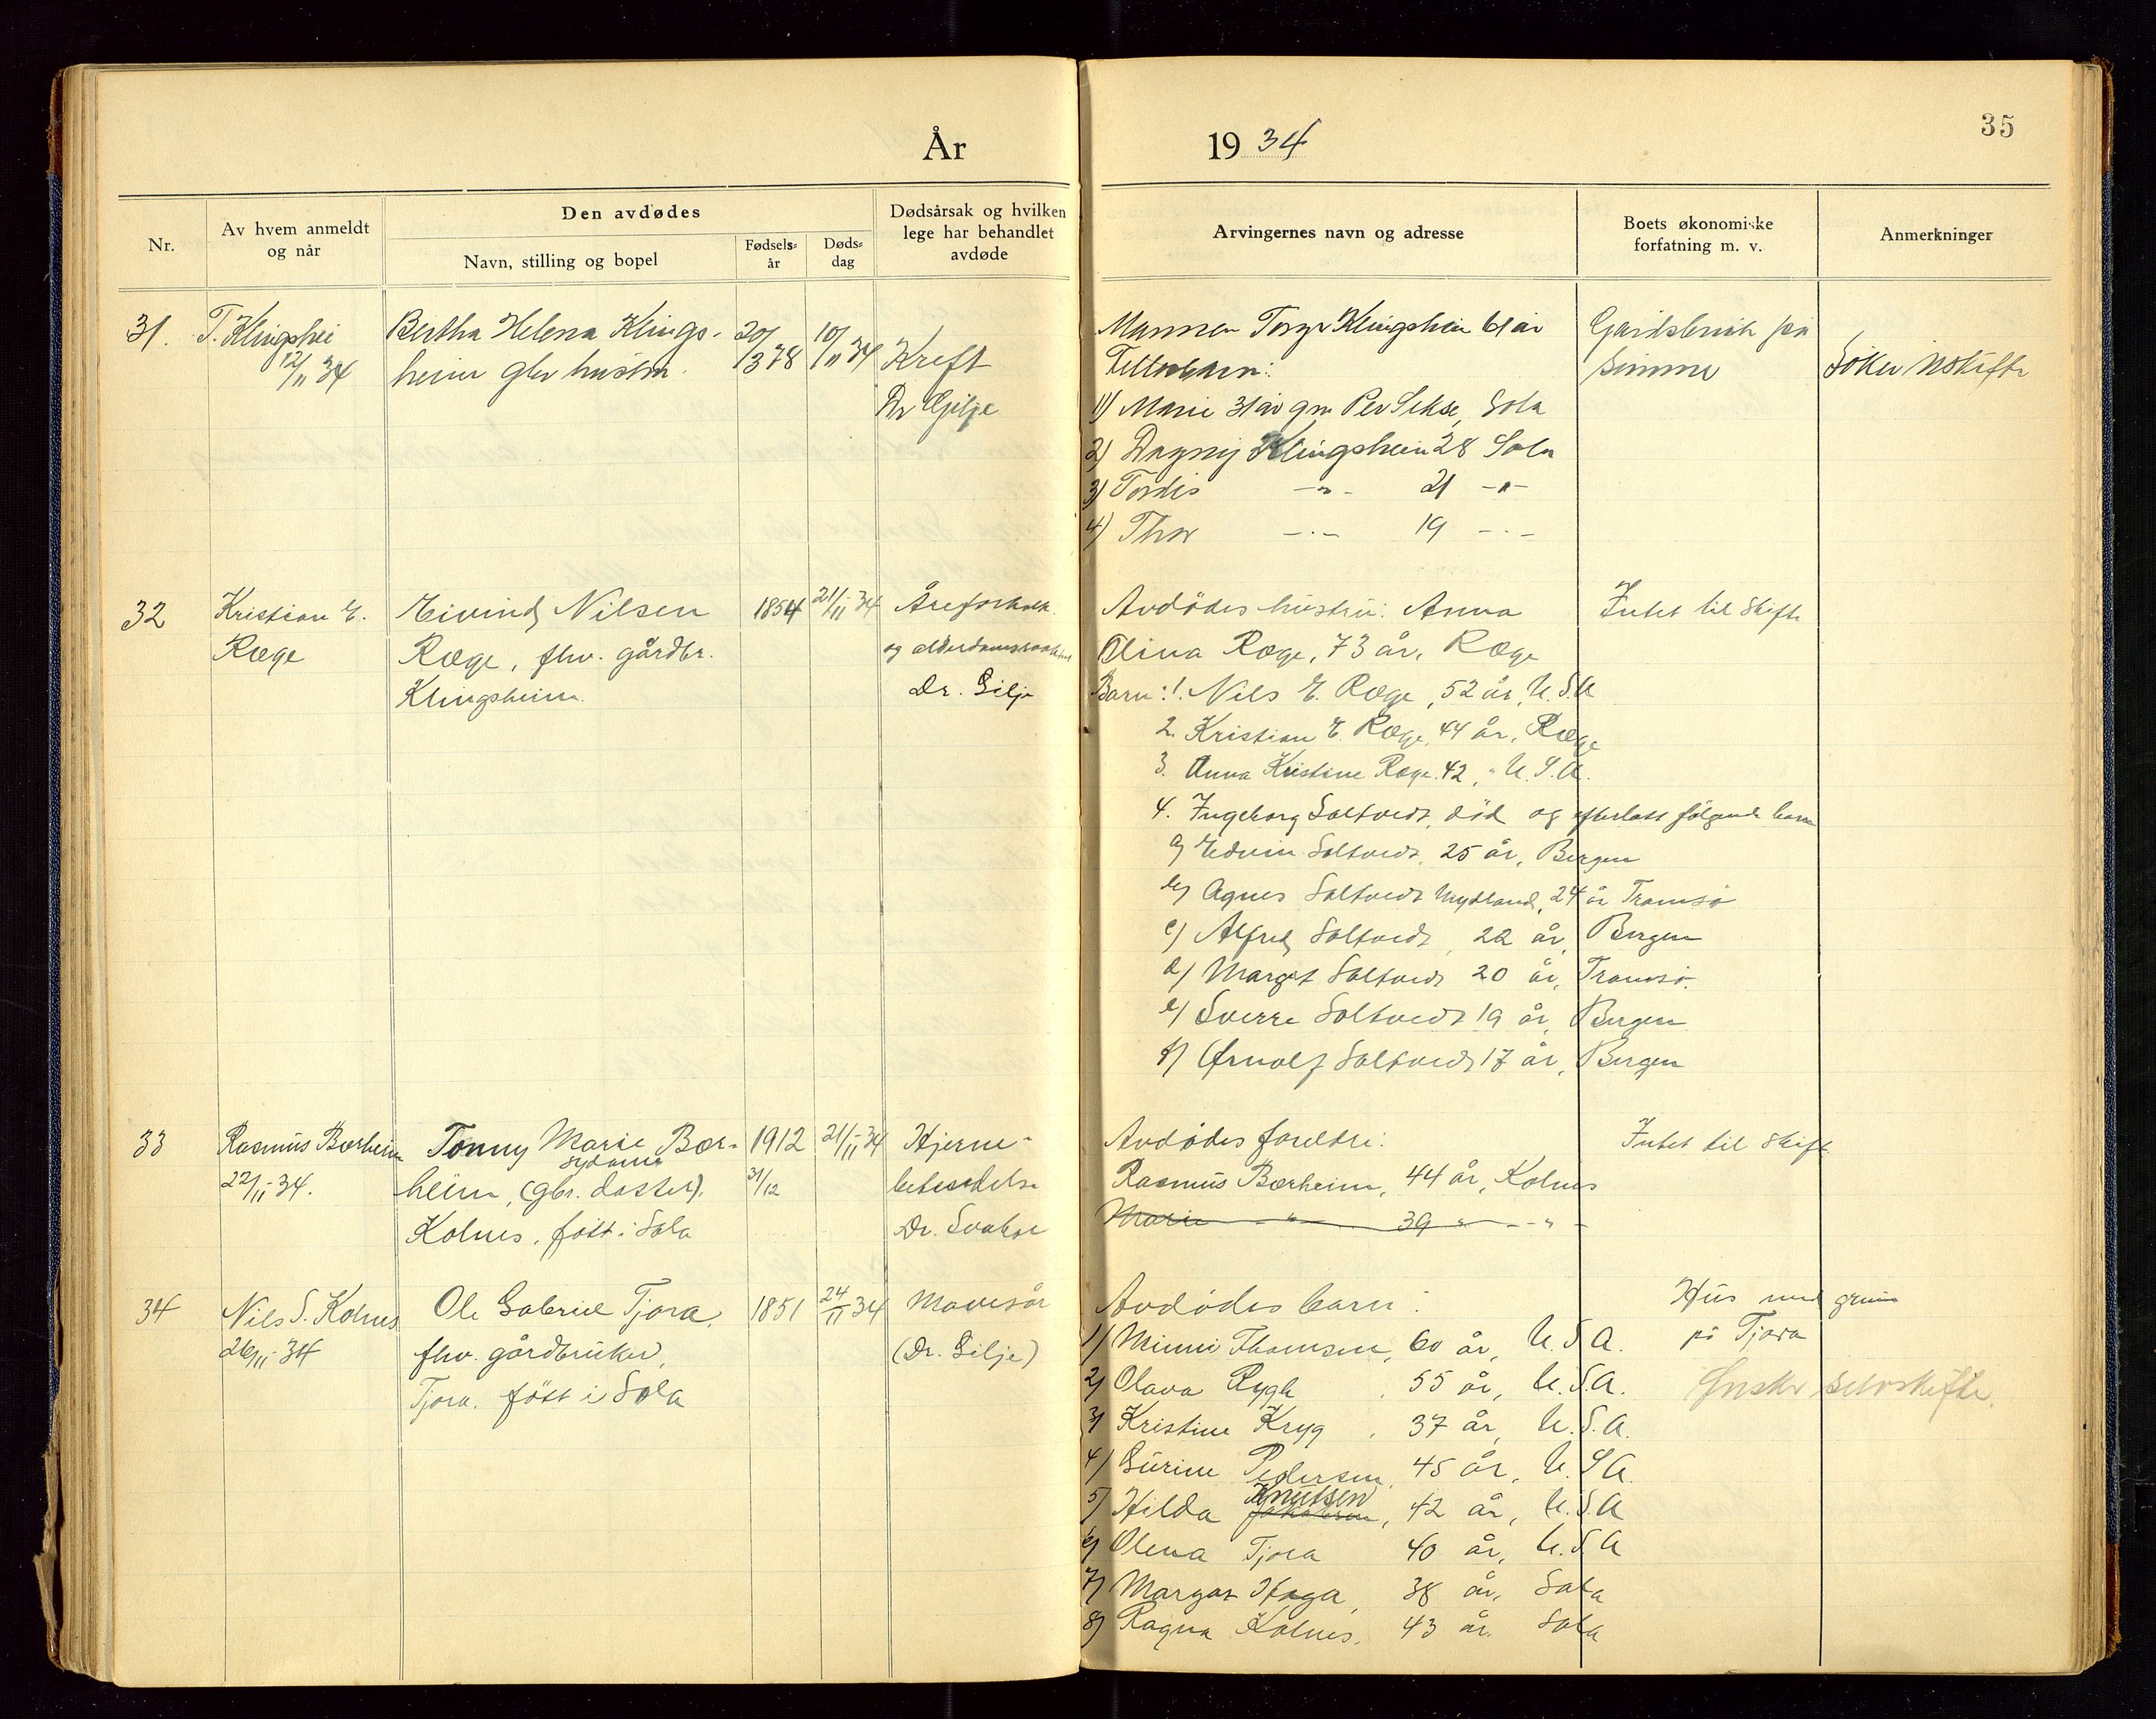 År 1934
35
Nr.
Av hvem anmeldt
og når
Den avdødes
Navn, stilling og bopel
Fødsels-
år
Døds-
dag
Dødsårsak og hvilken
lege har behandlet
avdøde
Arvingernes navn og adresse
Boets økonomiske
forfatning m. v.
Anmerkninger
31.
T. Klingshei
12/11 34
Bertha Helena Klings-
heim gbr hustru
20/3 78
10/11 34
Kreft
Dr Gilje
Mannen Torger Klingsheim 61 år
1) Marie 31 år gm Per Sekse, Sola
2) Dagny Klingsheim 28 Sola
3) Tordis -"- 21 -"-
4) Thor -"- 19 -"-
Gårdsbruk på
Søker uskifte
32
Kristian E.
Ræge
Eivind Nilsen
Ræge, fhv. gårdbr.
Klingsheim.
1854
21/11-34
Åreforkalk.
og
Dr. Gilje
Avdødes hustru: Anna
Olina Ræge, 73 år, Ræge
Barn: 1. Nils E. Ræge, 52 år, U.S.A
2. Kristian E. Ræge, 44 år, Ræge
3. Anna Kristine Ræge. 42 " U.S.A.
4. Ingeborg Saltvedt, død og efterlatt følgende barn
a) Edvin Saltvedt, 25 år, Bergen
b) Agnes Saltvedt Mydland, 24 år Tromsø
c) Alfred Saltvedt, 22 år, Bergen
d) Margit Saltvedt 20 år, Tromsø.
e) Sverre Saltvedt 19 år, Bergen
f) Ørnolf Saltvedt 17 år, Bergen
Intet til skifte
33
Rasmus Børheim
22/11-34.
Tonny Marie Bør-
heim, (gbr. datter).
Kolnes, født i Sola
1912
31/12
21/11-34
Hjerne-
betendelse
Dr.
Avdødes foreldre:
Rasmus Børheim, 44 år, Kolnes
Marie " 39 " - " -
Intet til skifte
34
Nils S. Kolnes
26/11-34
Ole Gabriel Tjora,
fhv. gårdbruker,
Tjora. født i Sola
1851
24/11 34
Mavesår
(Dr. Gilje)
Avdødes barn:
1) Minni Thomsen, 60 år, U.S.A.
2) Olava Rygh, 55 år, U.S.A.
3) Kristine Kryg, 37 år, U.S.A.
4) Gurine Pedersen, 45 år, U.S.A.
Knutsen
5) Hilda Jakobsen, 42 år, U.S.A
6) Olena Tjora 40 år, U.S.A
7) Margot Haga, 38 år, Sola
8) Ragna Kolnes. 43 år. Sola
Hus med grunn
på Tjora
Ønsker selvskifte.